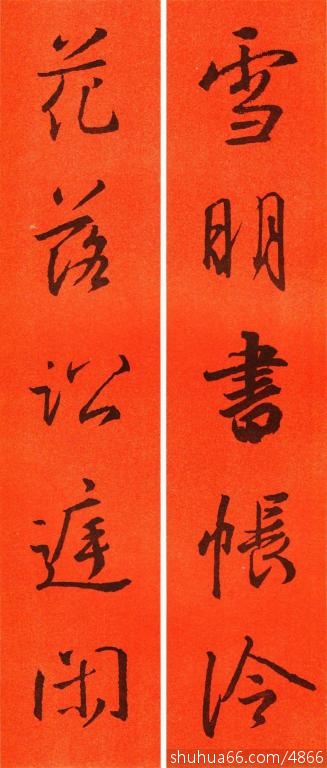 雪明書帳冷
花落訟庭閑
shuhua66.com/4866